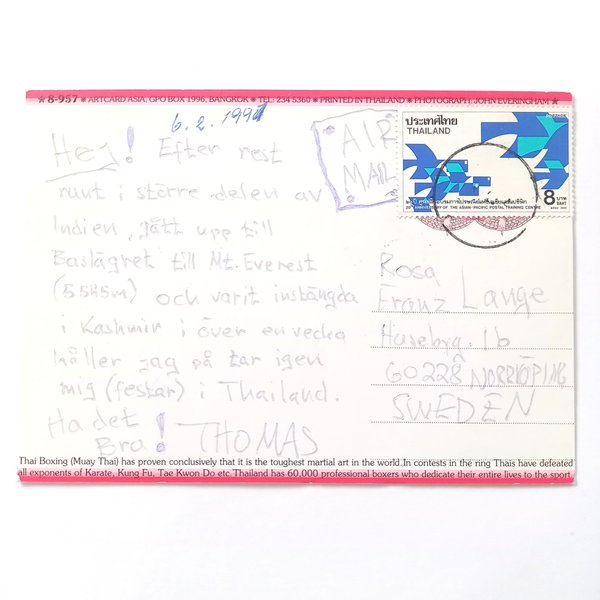 ★ 8-957 ✱ ARTCARD ASIA, GPO BOX 1996, BANGKOK ✱ TEL: 234 5360 ✱ PRINTED IN THAILAND ✱ PHOTOGRAPH: JOHN EVERINGHAM ★
6.2.1991
AIR
MAIL
ประเทศไทย
THAILAND
8 บาท
BAHT
20TH ANNIVERSARY OF THE ASIAN-PACIFIC POSTAL TRAINING CENTRE
Hej! Efter rest
runt i större delen av
Indien, gått upp till
Baslägret till Mt. Everest
(5545m) och varit instängda
i Kashmir i över en vecka
håller jag på tar igen
mig (festar) i Thailand.
Ha det
Bra! THOMAS
Rosa
Franz Lange
Husebyg. 1b
60228 NORRKÖPING
SWEDEN
Thai Boxing (Muay Thai) has proven conclusively that it is the toughest martial art in the world.In contests in the ring Thais have defeated
all exponents of Karate, Kung Fu, Tae Kwon Do etc.Thailand has 60,000 professional boxers who dedicate their entire lives to the sport.